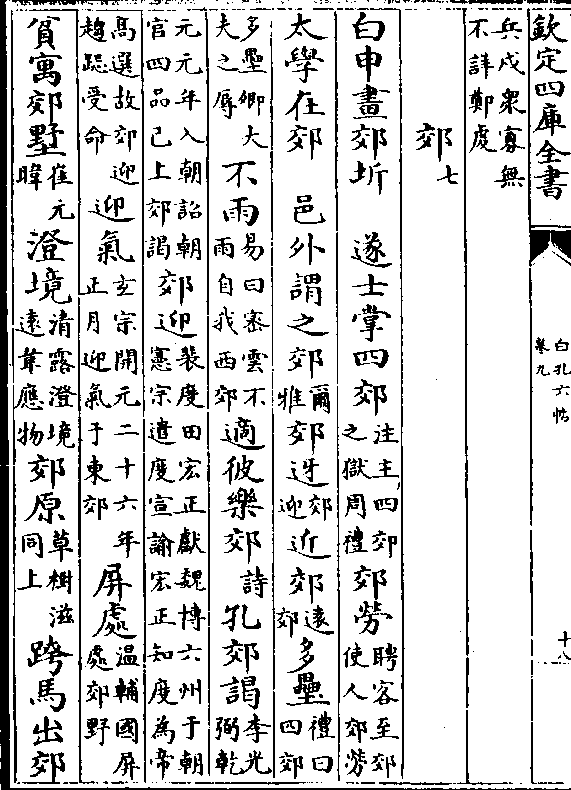 欽定四庫全書
白孔六帖
卷九
十八
兵戍衆寡無
不詳鄭處
郊七
白申畫郊圻 遂士掌四郊注主四郊之獄周禮郊勞聘客至郊使人郊勞
太學在郊 邑外謂之郊爾雅郊迓郊迎近郊遠郊多壘禮曰四郊
多壘卿大夫之辱不雨易曰密雲不雨自我西郊適彼樂郊詩孔郊謁李光弼乾
元元年入朝詔朝官四品已上郊謁郊迎裴度田宏正獻魏博六州于朝憲宗遣度宣諭宏正知度為帝
髙選故郊迎趨跽受命迎氣玄宗開元二十六年正月迎氣于東郊屏處温輔國屏處郊野
貧寓郊墅崔元暐澄境清露澄境遠韋應物郊原草樹滋同上跨馬出郊